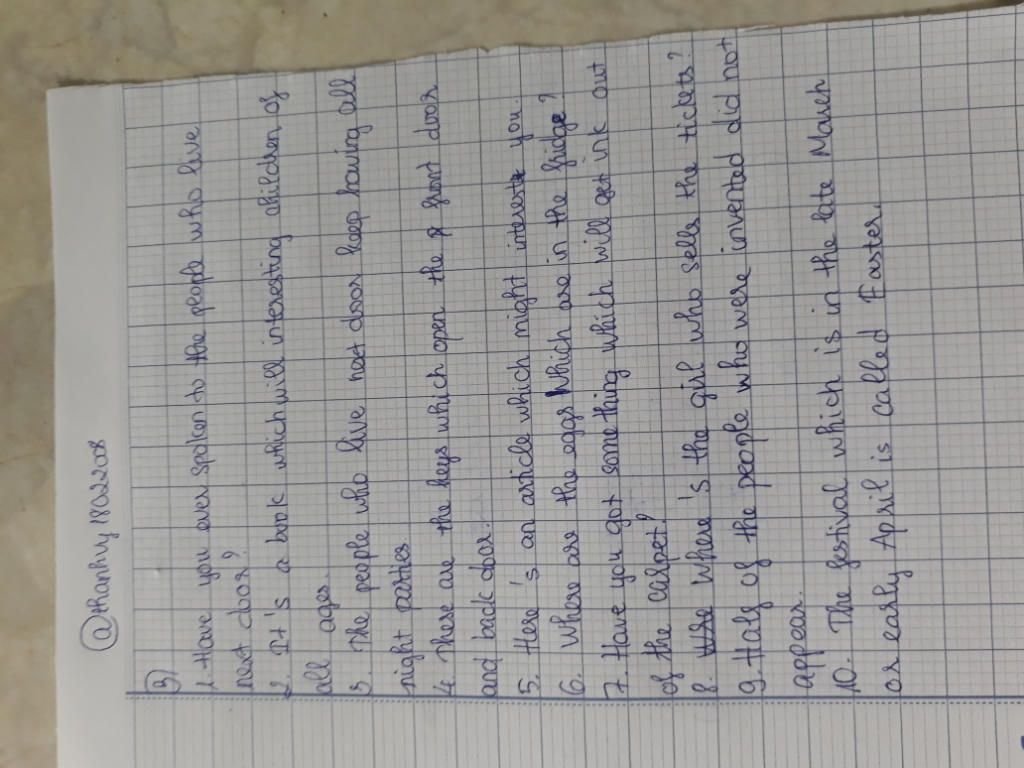 @thanhvy18022008
B)
1. Have you ever spoken to the people who live
next door?
2. It's a book which will interesting children of
all ages
3. The people who live next door keep having all
night parties.
4. These are the keys which open the front door
and back door.
5. Here's an article which might interest you.
6. Where are the eggs which are in the fridge?
7. Have you got something which will get ink out
of the carpet?
8. Where's the girl who sells the tickets?
9. Half of the people who were invented did not
appear.
10. The festival which is in the late March
or early April is called Easter.